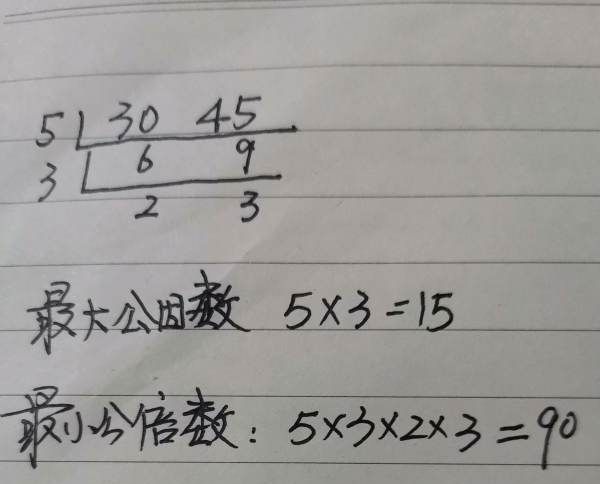 5 30 45
3 6 9
2 3
最大公因数 5×3=15
最小公倍数: 5×3×2×3=90